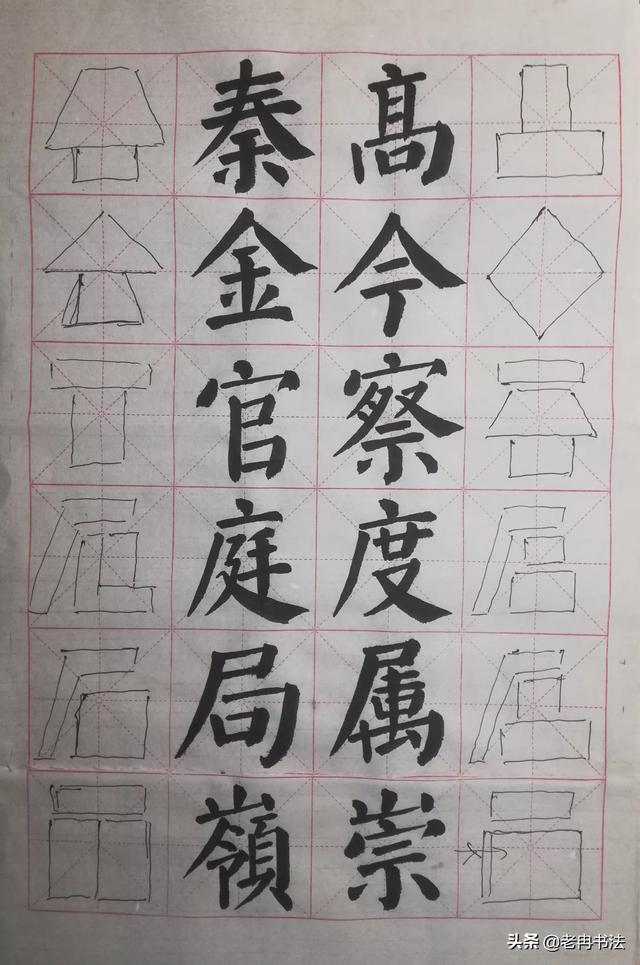 髙今察度属崇
秦金官庭局嶺
头条 @老冉书法